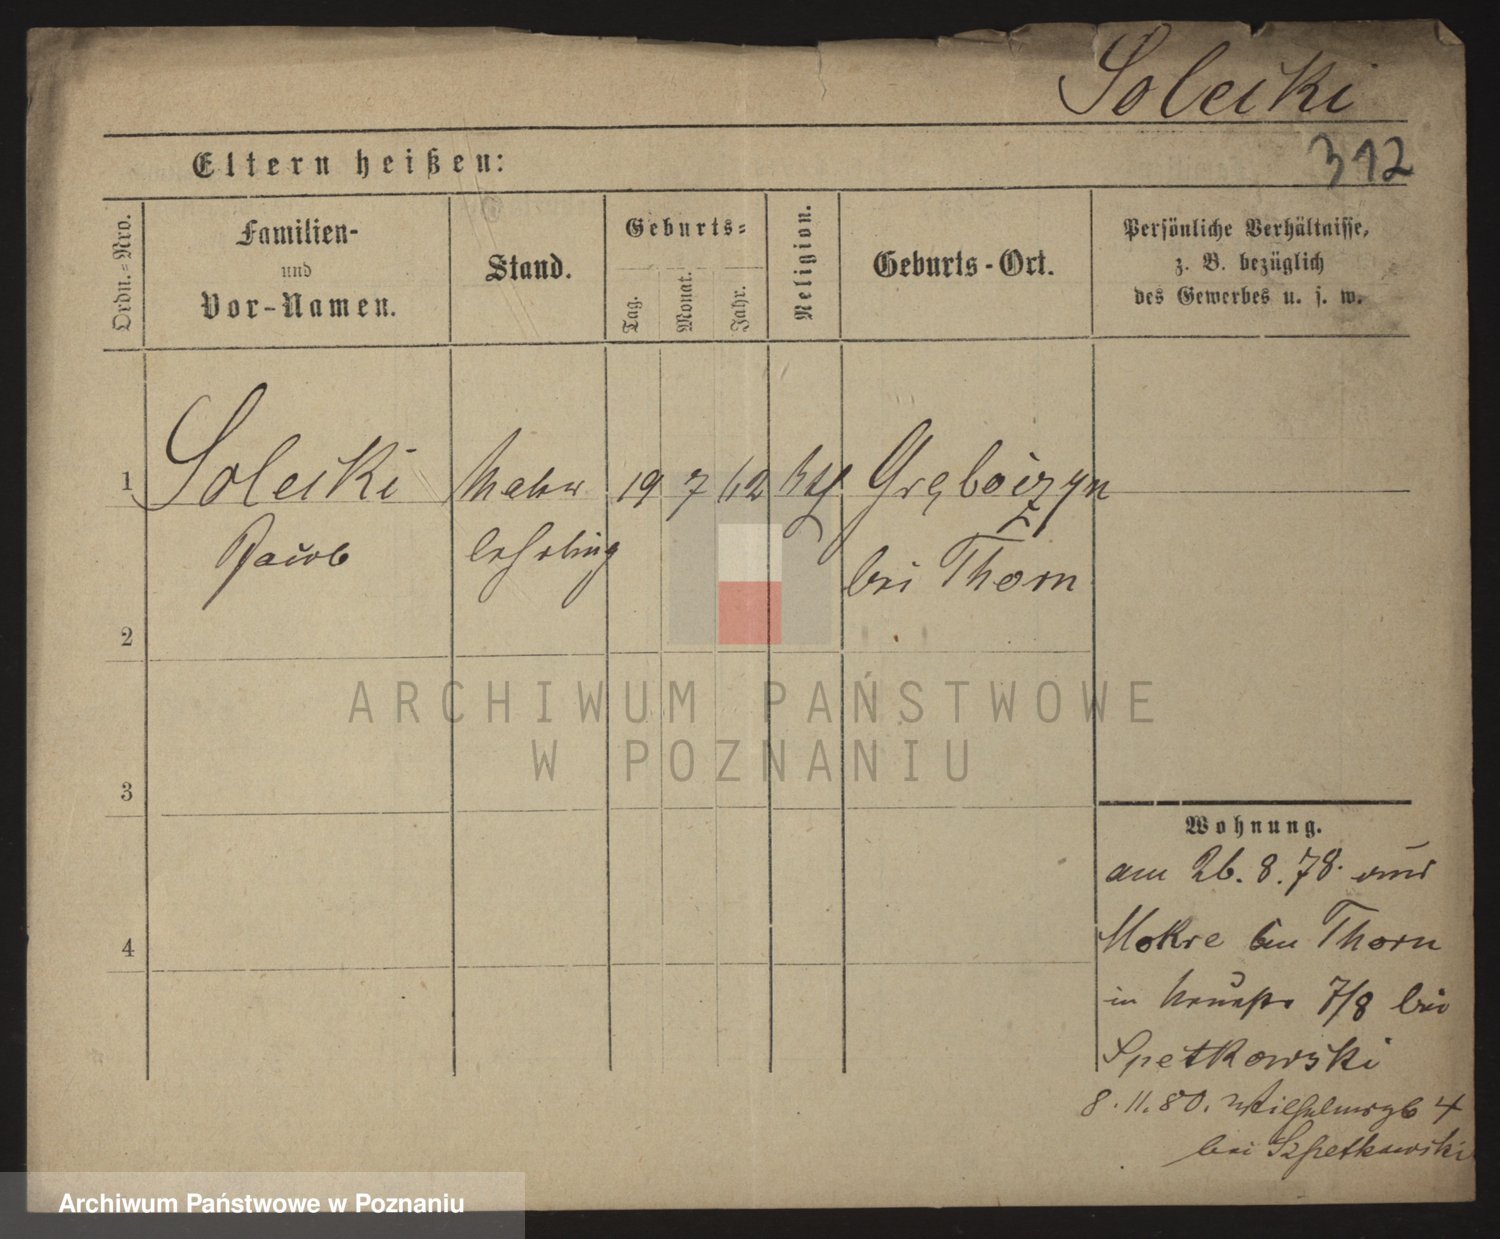 Soleiki
312
Eltern heißen:
Ordn.-Nro.
Familien-
und
Vor-Namen.
Stand.
Geburts-
Tag.
Monat.
Jahr.
Religion.
Geburts-Ort.
Persönliche Verhältnisse,
z. B. bezüglich
des Gewerbes u. s. w.
1 Soleiki Maler 19 7 62 kth Gręboizyn
Jacob lehrling bei Thorn
2
3
4
Wohnung.
am 26. 8. 78. aus
Mokre bei Thorn
in 7/8 bei
Spetkowski
8.11.80. Wilhelmsplb 4
bei Szpetkowski
ARCHIWUM PAŃSTWOWE
W POZNANIU
Archiwum Państwowe w Poznaniu